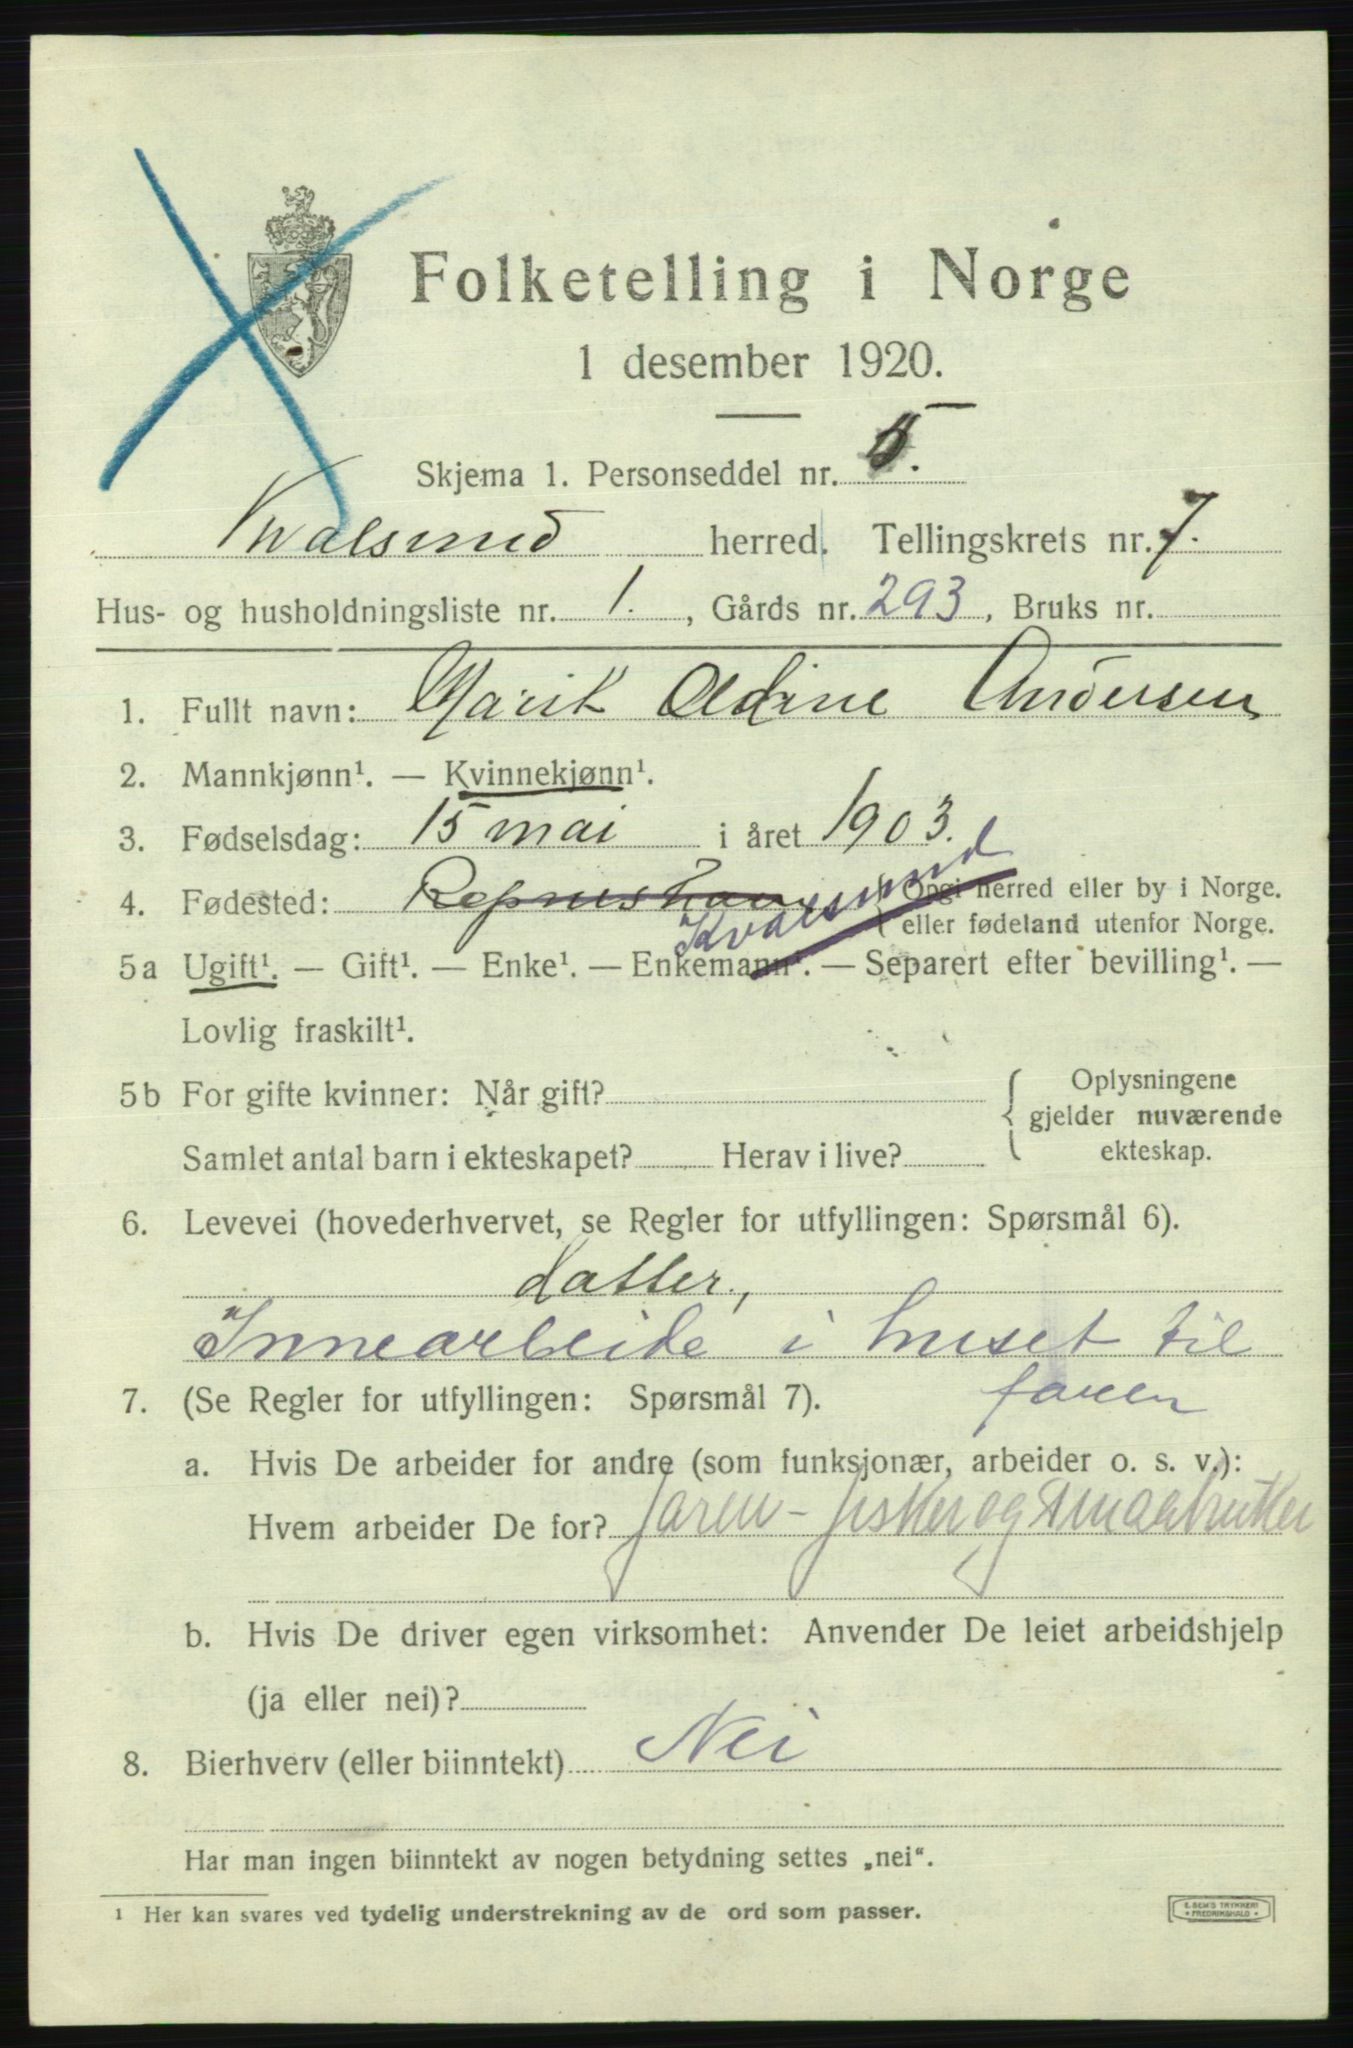 Folketelling i Norge
1 desember 1920.
Skjema 1. Personseddel nr. 5.
Kvalsund herred. Tellingskrets nr. 7.
Hus- og husholdningsliste nr. 1. , Gårds nr. 293, Bruks nr.
1. Fullt navn: Marit Andersen
2. Mannkjønn¹. — Kvinnekjønn¹.
3. Fødselsdag: 15 mai i året 1903.
4. Fødested: Kvalsund Opgi herred eller by i Norge.
eller fødeland utenfor Norge.
5a Ugift¹. — Gift¹. — Enke¹. — Enkemann¹. — Separert efter bevilling¹. —
Lovlig fraskilt¹.
5b For gifte kvinner: Når gift? Oplysningene
gjelder nuværende
Samlet antal barn i ekteskapet? Herav i live? ekteskap.
6. Levevei (hovederhvervet, se Regler for utfyllingen: Spørsmål 6).
datter,
Innearbeide i huset til
faren
7. (Se Regler for utfyllingen: Spørsmål 7).
a. Hvis De arbeider for andre (som funksjonær, arbeider o. s. v.):
Hvem arbeider De for? faren - fisker og smaabruker
b. Hvis De driver egen virksomhet: Anvender De leiet arbeidshjelp
(ja eller nei)?
8. Bierhverv (eller biinntekt) Nei
Har man ingen biinntekt av nogen betydning settes „nei“.
¹ Her kan svares ved tydelig understrekning av de ord som passer.
E. SEM'S TRYKKERI
FREDRIKSHALD